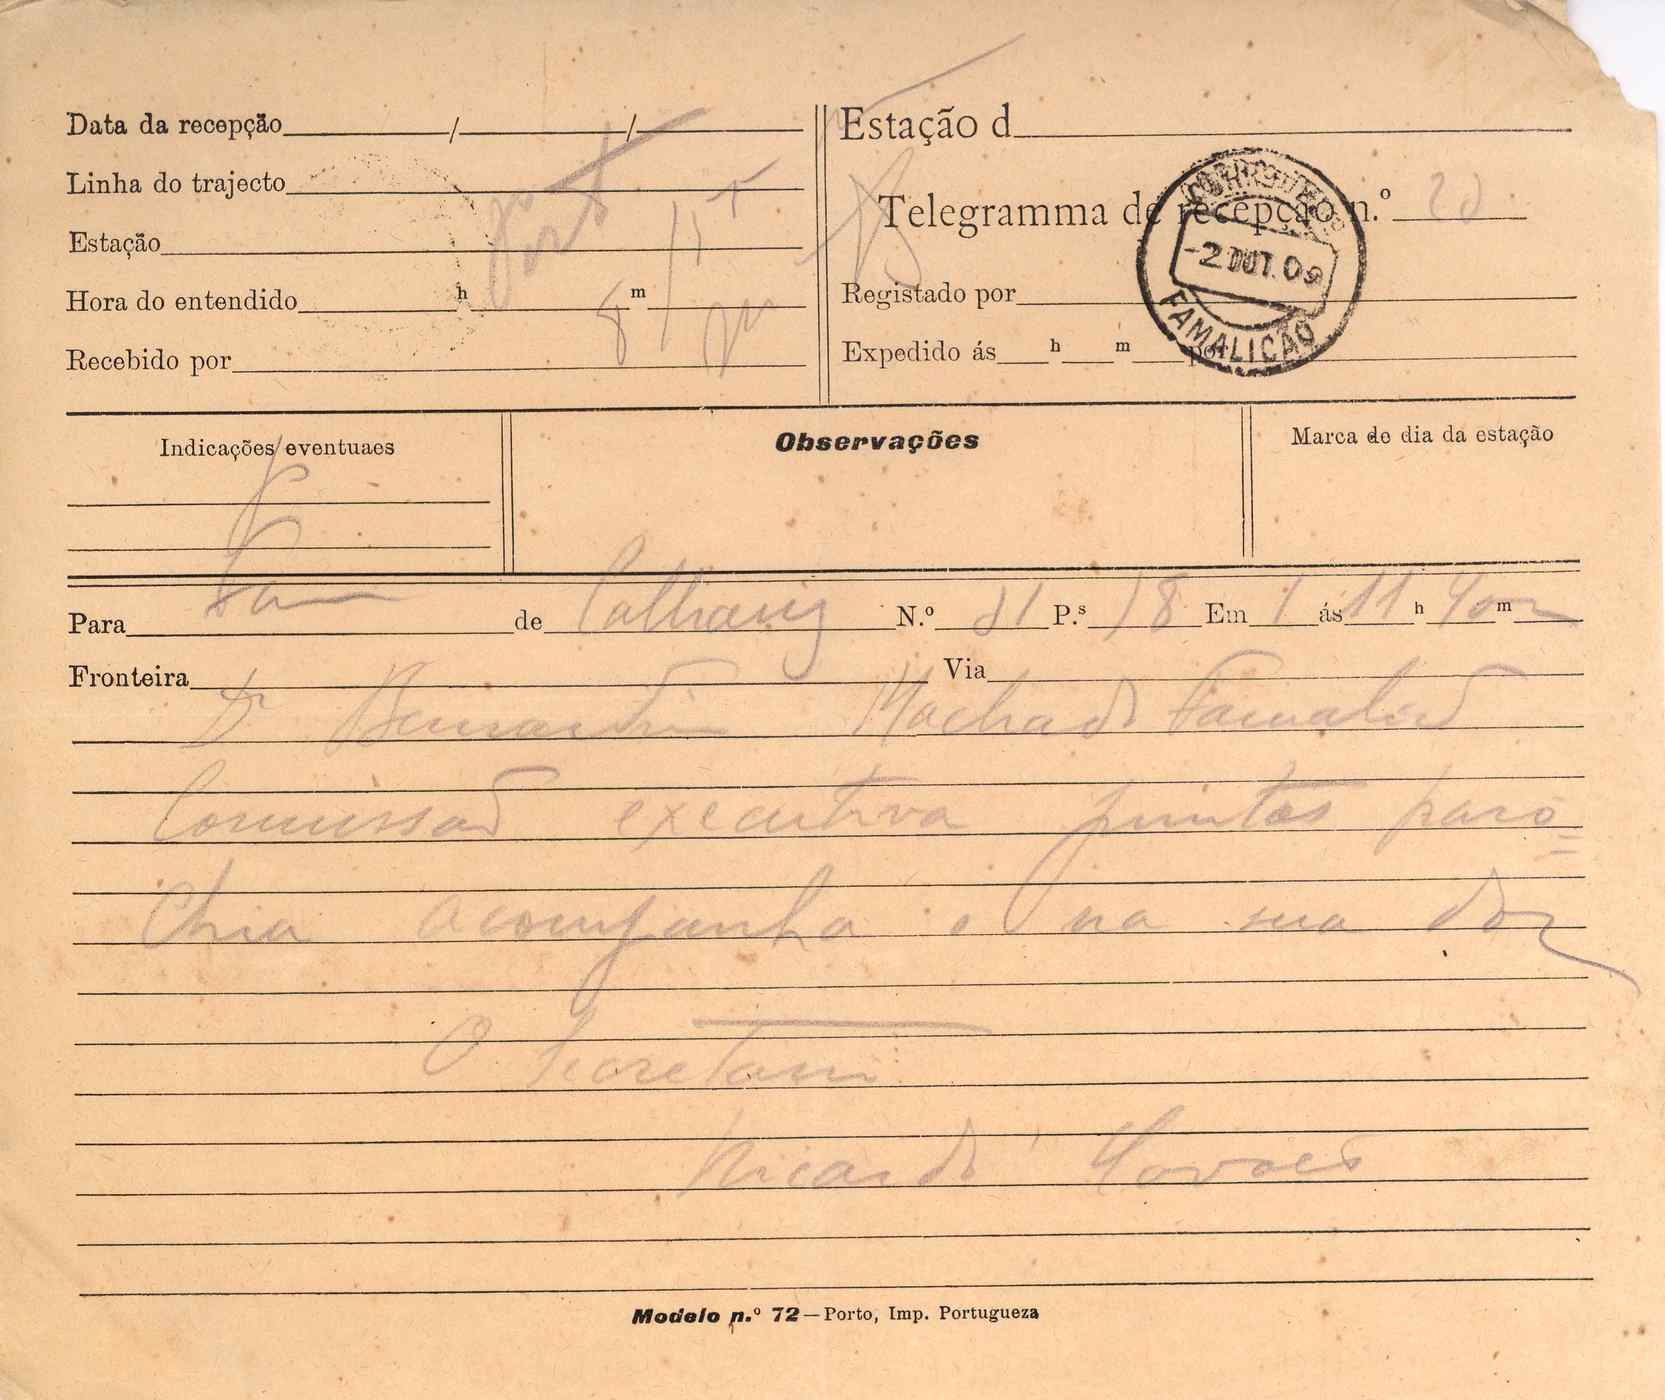 Data da recepção / /
Linha do trajecto
Estação
Hora do entendido h m
Recebido por
Porto
8/15
Estação d
Telegramma de recepção n.º 20
Registado por
Expedido ás h m por
CORREIOS
-2 OUT. 09
FAMALICÃO
Indicações eventuaes
Observações
Marca de dia da estação
Para Fam de Calhariz N.º 81 P.s 18 Em 1 ás 11 h 40 m
Fronteira Via
Dr Bernardino Machado Famalicão
Commissão executiva juntas paro=
chia acompanha o na sua dor
O Secretario
Ricardo Covões
Modelo n.º 72 — Porto, Imp. Portugueza